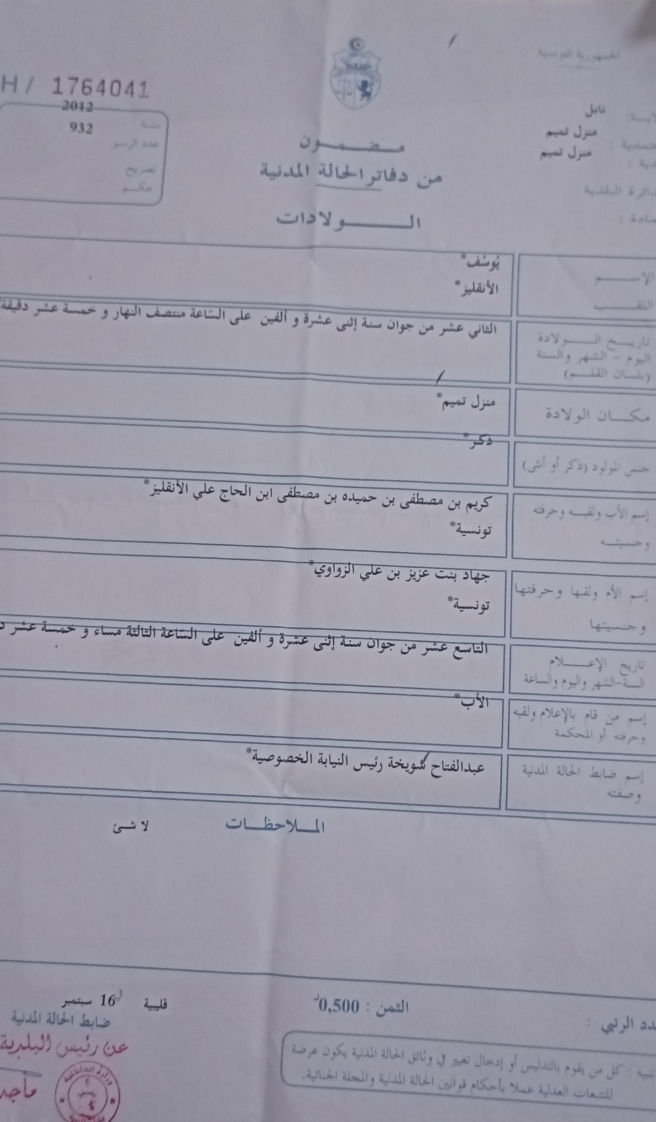 الجمهورية التونسية
H / 1764041
2012
سنة
932
عدد الرسم
تصريح
حكم
نابل
منزل تميم
منزل تميم
دائرة البلدية
مضمون
من دفاتر الحالة المدنية
الولادات
الإسم
يوسف*
اللقب
الأنقليز*
تاريخ الولادة
اليوم - الشهر والسنة
(بلسان القلم)
الثاني عشر من جوان سنة إثنى عشرة و ألفين على الساعة منتصف النهار و خمسة عشر دقيقة
مكان الولادة
منزل تميم*
جنس المولود (ذكر أو أنثى)
ذكر*
إسم الأب ولقبه وحرفته
وجنسيته
كريم بن مصطفى بن حميده بن مصطفى ابن الحاج علي الأنقليز*
تونسية*
إسم الأم ولقبها وحرفتها
وجنسيتها
جهاد بنت عزيز بن علي الزواوي*
تونسية*
تاريخ الإعلام
السنة-الشهر واليوم والساعة
التاسع عشر من جوان سنة إثنى عشرة و ألفين على الساعة الثالثة مساء و خمسة عشر
إسم من قام بالإعلام ولقبه
وحرفته أو المحكمة
الأب*
إسم ضابط الحالة المدنية
وصفته
عبدالفتاح شويخة رئيس النيابة الخصوصية*
الملاحظات
لا شئ
الثمن : 0,500
قليبية 16 سبتمبر
ضابط الحالة المدنية
عن رئيس البلدية
عدد الرتبي :
تنبيه : كل من يقوم بالتدليس أو إدخال تغيير في وثائق الحالة المدنية يكون عرضة
للتتبعات العدلية عملا بأحكام قوانين الحالة المدنية والمجلة الجنائية.